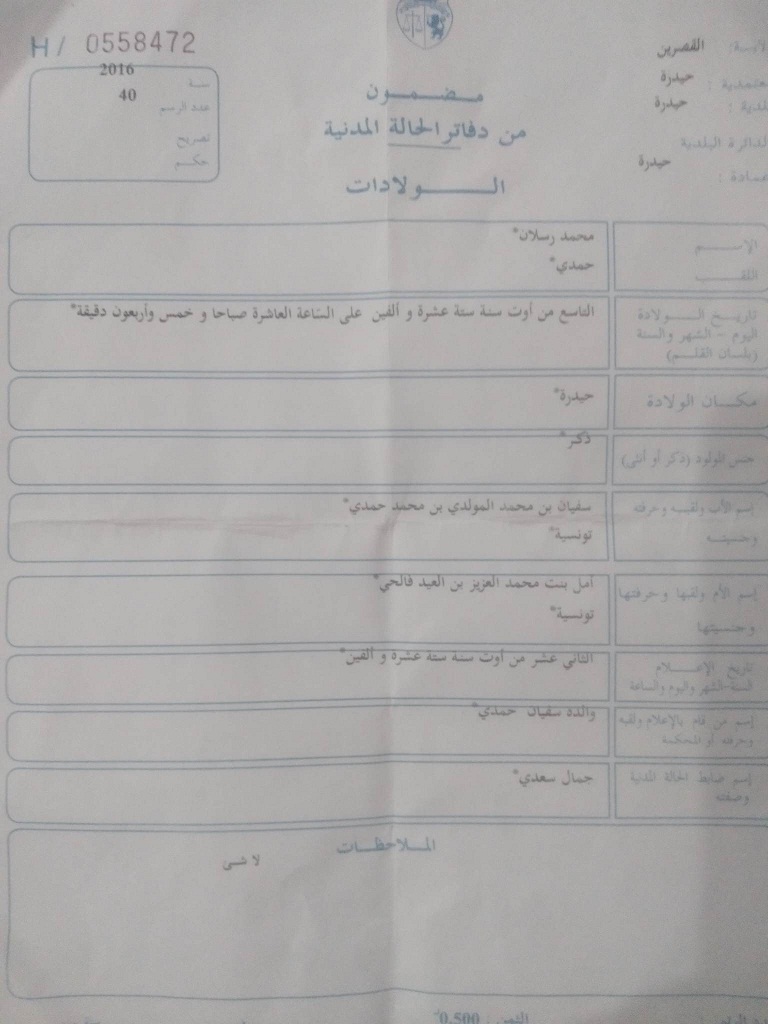 H/ 0558472
سنة 2016
عدد الرسم 40
تصريح
حكم
ولاية: القصرين
معتمدية: حيدرة
بلدية: حيدرة
الدائرة البلدية
عمادة: حيدرة
مضمون
من دفاتر الحالة المدنية
الولادات
الإسم محمد رسلان*
اللقب حمدي*
تاريخ الولادة
اليوم - الشهر والسنة
(بلسان القلم)
التاسع من أوت سنة ستة عشرة و ألفين على الساعة العاشرة صباحا و خمس وأربعون دقيقة*
مكان الولادة حيدرة*
جنس المولود (ذكر أو أنثى) ذكر*
إسم الأب ولقبه وحرفته
وجنسيته
سفيان بن محمد المولدي بن محمد حمدي*
تونسية*
إسم الأم ولقبها وحرفتها
وجنسيتها
أمل بنت محمد العزيز بن العيد فالحي*
تونسية*
تاريخ الإعلام
السنة-الشهر واليوم والساعة
الثاني عشر من أوت سنة ستة عشرة و ألفين*
إسم من قام بالإعلام ولقبه
وحرفته أو المحكمة
والده سفيان حمدي*
إسم ضابط الحالة المدنية
وصفته
جمال سعدي*
الملاحظات
لا شئ
الثمن: 0,500